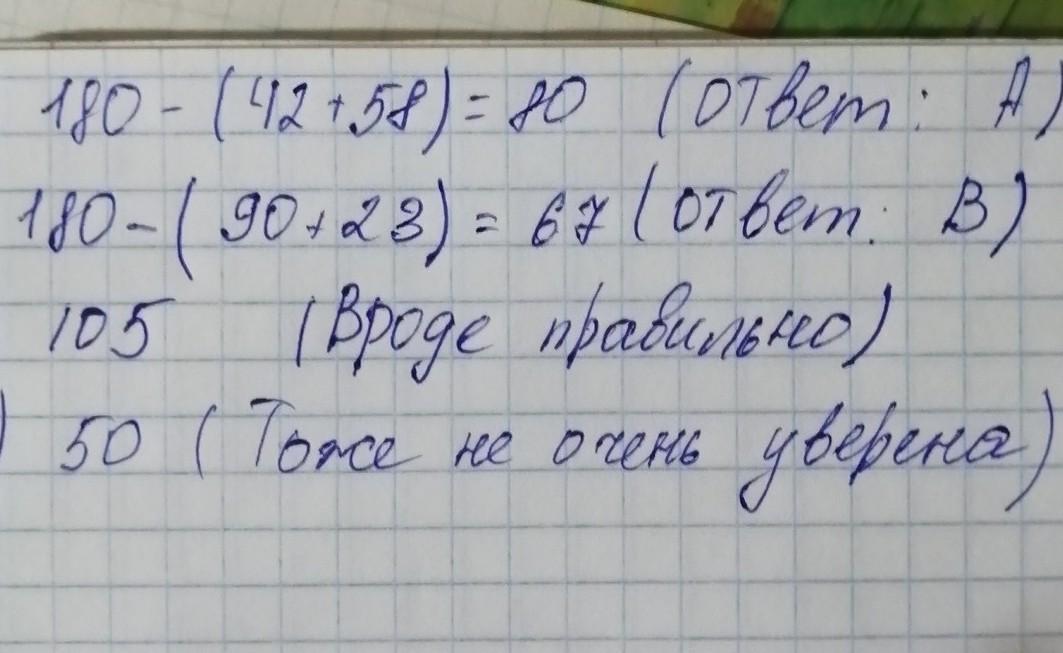 180 - (42+58) = 80 (Ответ: А)
180 - (90+23) = 67 (Ответ: В)
105 (Вроде правильно)
) 50 (Тоже не очень уверена)